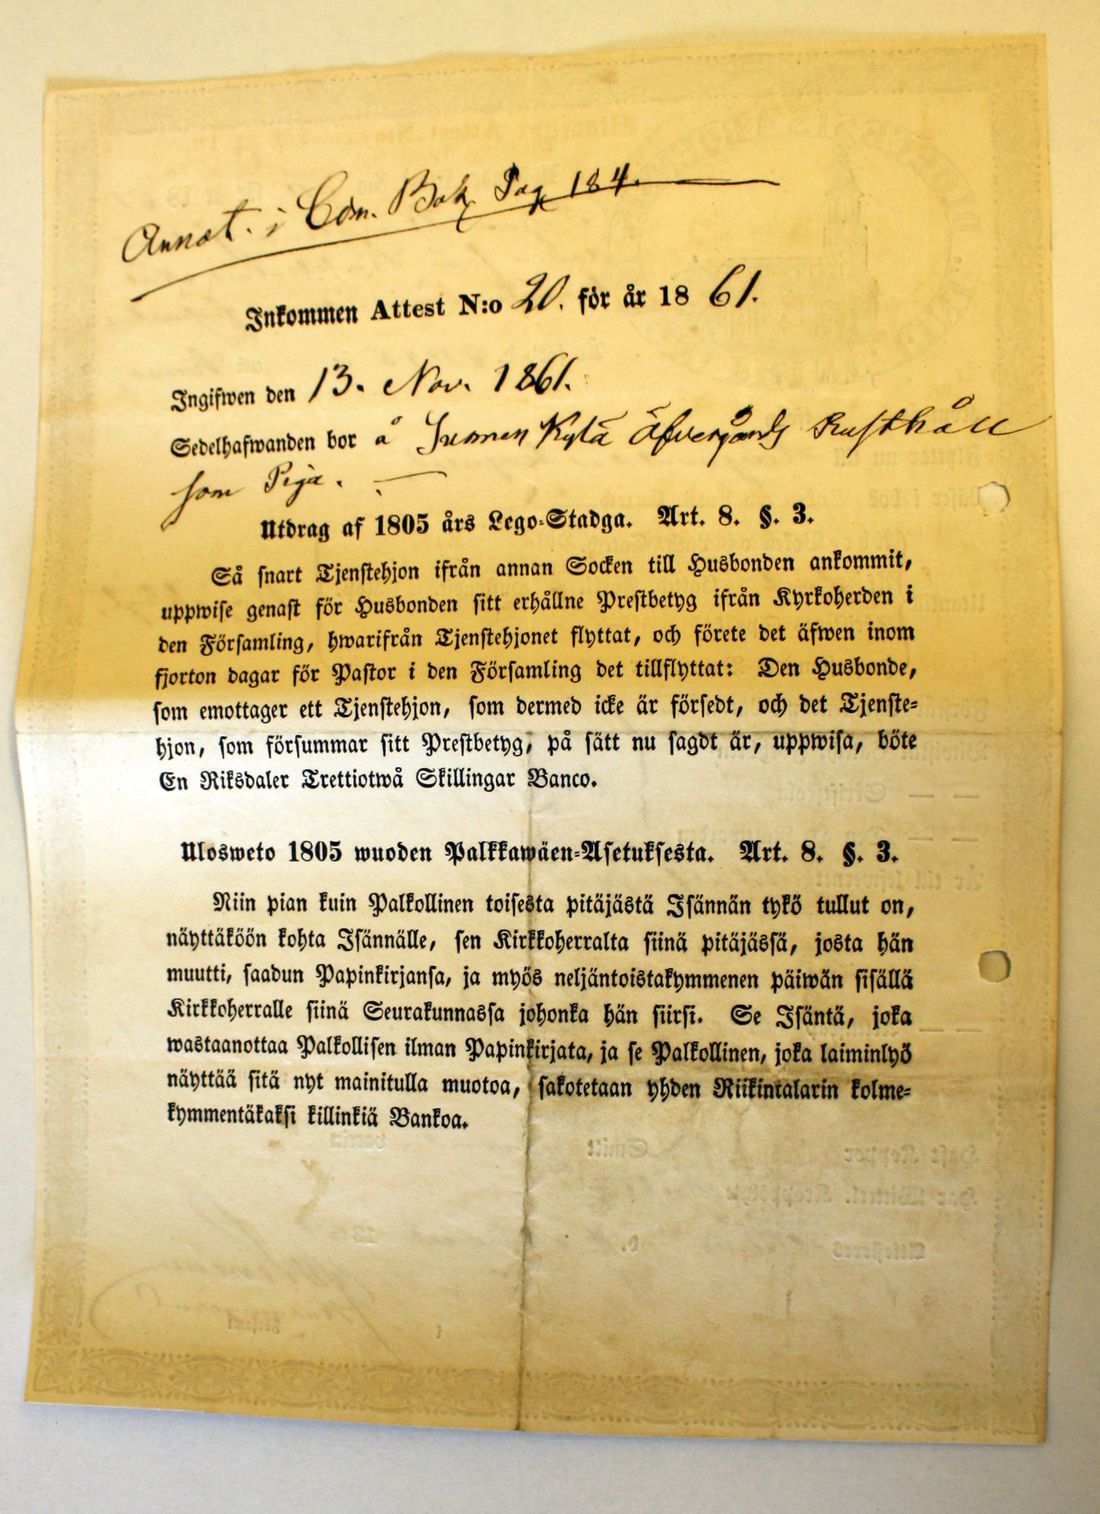 Annot. i Com. Bok Pag 184.
Inkommen Attest N:o 20. för år 1861.
Ingifwen den 13. Nov. 1861.
Sedelhafwanden bor å Suomen Kylä Öfvergårds Rusthåll
som Piga.
Utdrag af 1805 års Lego-Stadga. Art. 8. §. 3.
Så snart Tjenstehjon ifrån annan Socken till Husbonden ankommit,
uppwise genast för Husbonden sitt erhållne Prestbetyg ifrån Kyrkoherden i
den Församling, hwarifrån Tjenstehjonet flyttat, och förete det äfwen inom
fjorton dagar för Pastor i den Församling det tillflyttat: Den Husbonde,
som emottager ett Tjenstehjon, som dermed icke är försedt, och det Tjenste-
hjon, som försummar sitt Prestbetyg, på sätt nu sagdt är, uppwisa, böte
En Riksdaler Trettiotwå Skillingar Banco.
Ulosweto 1805 wuoden Palkkawäen-Asetuksesta. Art. 8. §. 3.
Niin pian kuin Palkollinen toisesta pitäjästä Isännän tykö tullut on,
näyttäköön kohta Isännälle, sen Kirkkoherralta siinä pitäjässä, josta hän
muutti, saadun Papinkirjansa, ja myös neljäntoistakymmenen päiwän sisällä
Kirkkoherralle siinä Seurakunnassa johonka hän siirsi. Se Isäntä, joka
wastaanottaa Palkollisen ilman Papinkirjata, ja se Palkollinen, joka laiminlyö
näyttää sitä nyt mainitulla muotoa, sakotetaan yhden Riikintalarin kolme-
kymmentäkaksi killinkiä Bankoa.